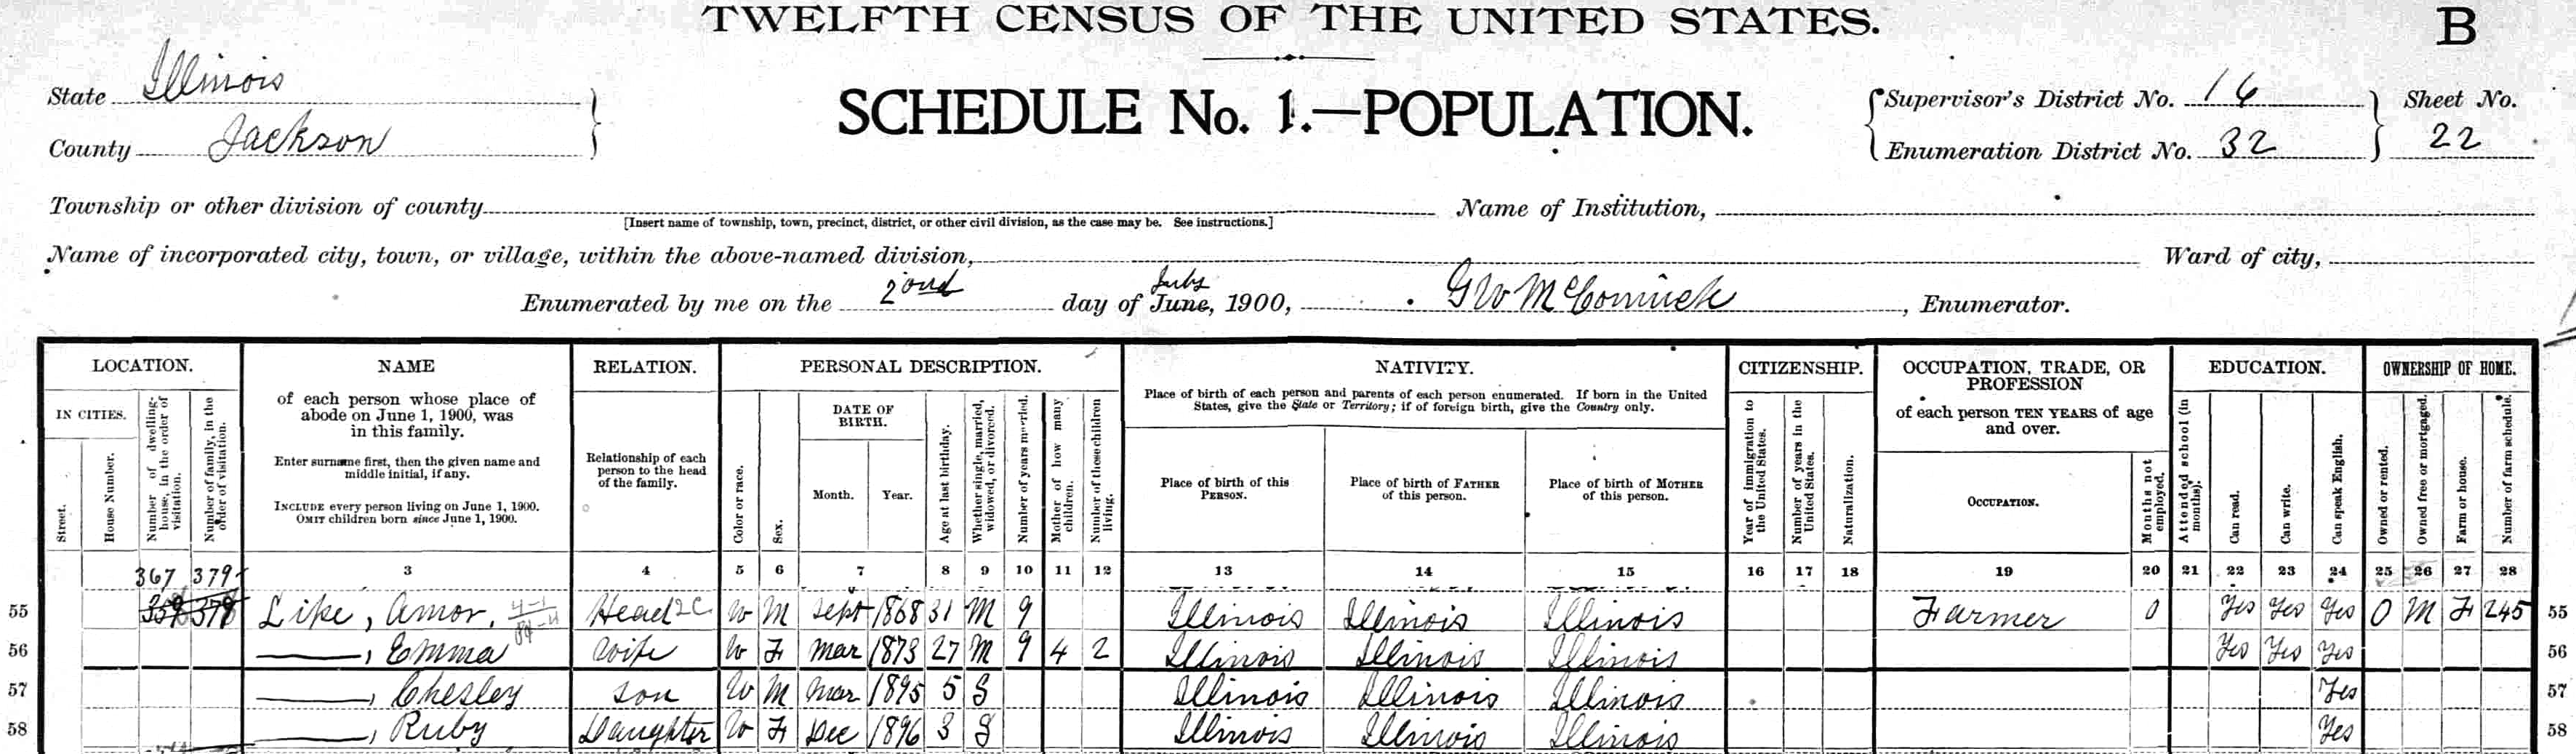 TWELFTH CENSUS OF THE UNITED STATES.
B
State Illinois
County Jackson
SCHEDULE No. 1.—POPULATION.
Supervisor's District No. 16
Enumeration District No. 32
Sheet No.
22
Township or other division of county
[Insert name of township, town, precinct, district, or other civil division, as the case may be. See instructions.]
Name of Institution,
Name of incorporated city, town, or village, within the above-named division,
Ward of city,
Enumerated by me on the 2ond day of June, July 1900, GW McCormick, Enumerator.
LOCATION.
IN CITIES.
Street.
House Number.
Number of dwelling-house, in the order of visitation.
Number of family, in the order of visitation.
NAME
of each person whose place of
abode on June 1, 1900, was
in this family.
Enter surname first, then the given name and
middle initial, if any.
INCLUDE every person living on June 1, 1900.
OMIT children born since June 1, 1900.
RELATION.
Relationship of each
person to the head
of the family.
PERSONAL DESCRIPTION.
Color or race.
Sex.
DATE OF
BIRTH.
Month.
Year.
Age at last birthday.
Whether single, married,
widowed, or divorced.
Number of years married.
Mother of how many
children.
Number of these children
living.
NATIVITY.
Place of birth of each person and parents of each person enumerated. If born in the United
States, give the State or Territory; if of foreign birth, give the Country only.
Place of birth of this
PERSON.
Place of birth of FATHER
of this person.
Place of birth of MOTHER
of this person.
CITIZENSHIP.
Year of immigration to
the United States.
Number of years in the
United States.
Naturalization.
OCCUPATION, TRADE, OR
PROFESSION
of each person TEN YEARS of age
and over.
OCCUPATION.
Months not
employed.
EDUCATION.
Attended school (in
months).
Can read.
Can write.
Can speak English.
OWNERSHIP OF HOME.
Owned or rented.
Owned free or mortgaged.
Farm or house.
Number of farm schedule.
367 379 3 4 5 6 7 8 9 10 11 12 13 14 15 16 17 18 19 20 21 22 23 24 25 26 27 28
55 359 378 Lipe, Amor, Head W M Sept 1868 31 M 9 Illinois Illinois Illinois Farmer 0 Yes Yes Yes O M F 245 55
56 ——, Emma Wife W F Mar 1873 27 M 9 4 2 Illinois Illinois Illinois Yes Yes Yes 56
57 ——, Chesley Son W M Mar 1895 5 S Illinois Illinois Illinois Yes 57
58 ——, Ruby Daughter W F Dec 1896 3 S Illinois Illinois Illinois Yes 58